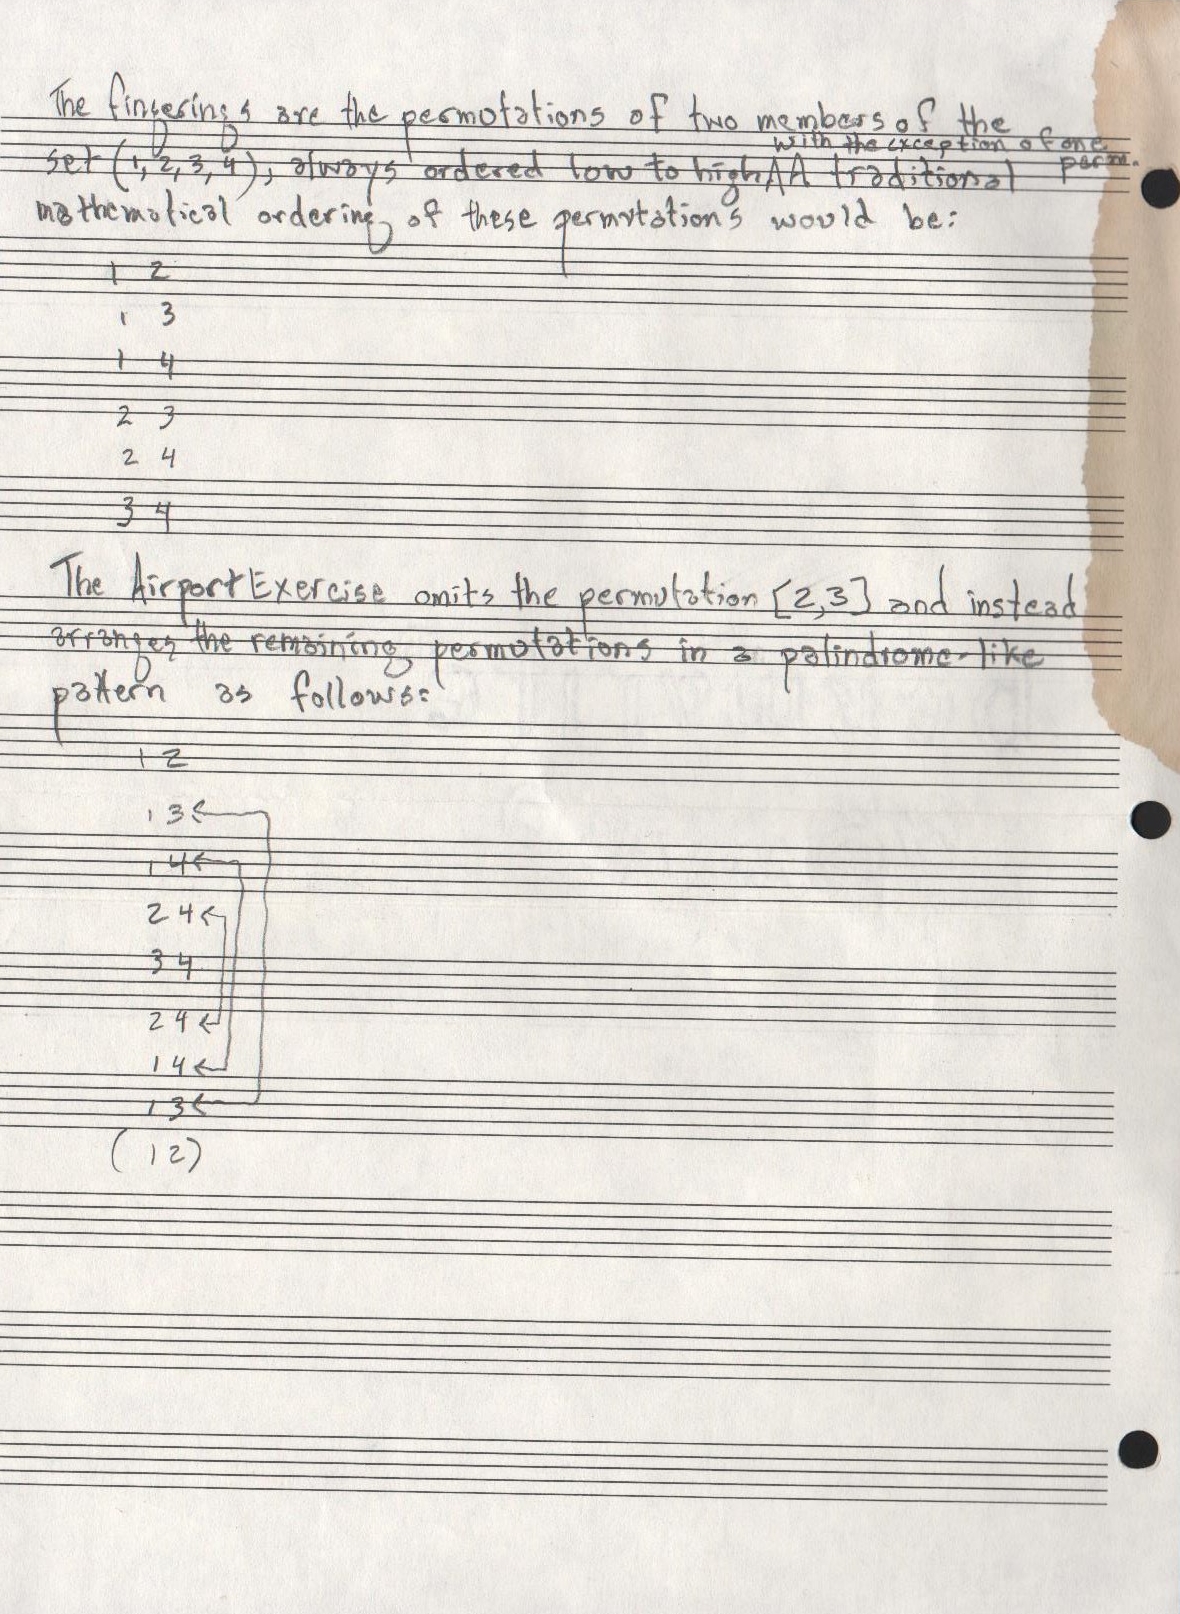 The fingerings are the permutations of two members of the
with the exception of one
set (1, 2, 3, 4), always ordered low to high^A traditional perm.
mathematical ordering of these permutations would be:
1 2
1 3
1 4
2 3
2 4
3 4
The Airport Exercise omits the permutation [2,3] and instead
arranges the remaining permutations in a palindrome-like
pattern as follows:
1 2
1 3
1 4
2 4
3 4
2 4
1 4
1 3
( 1 2 )